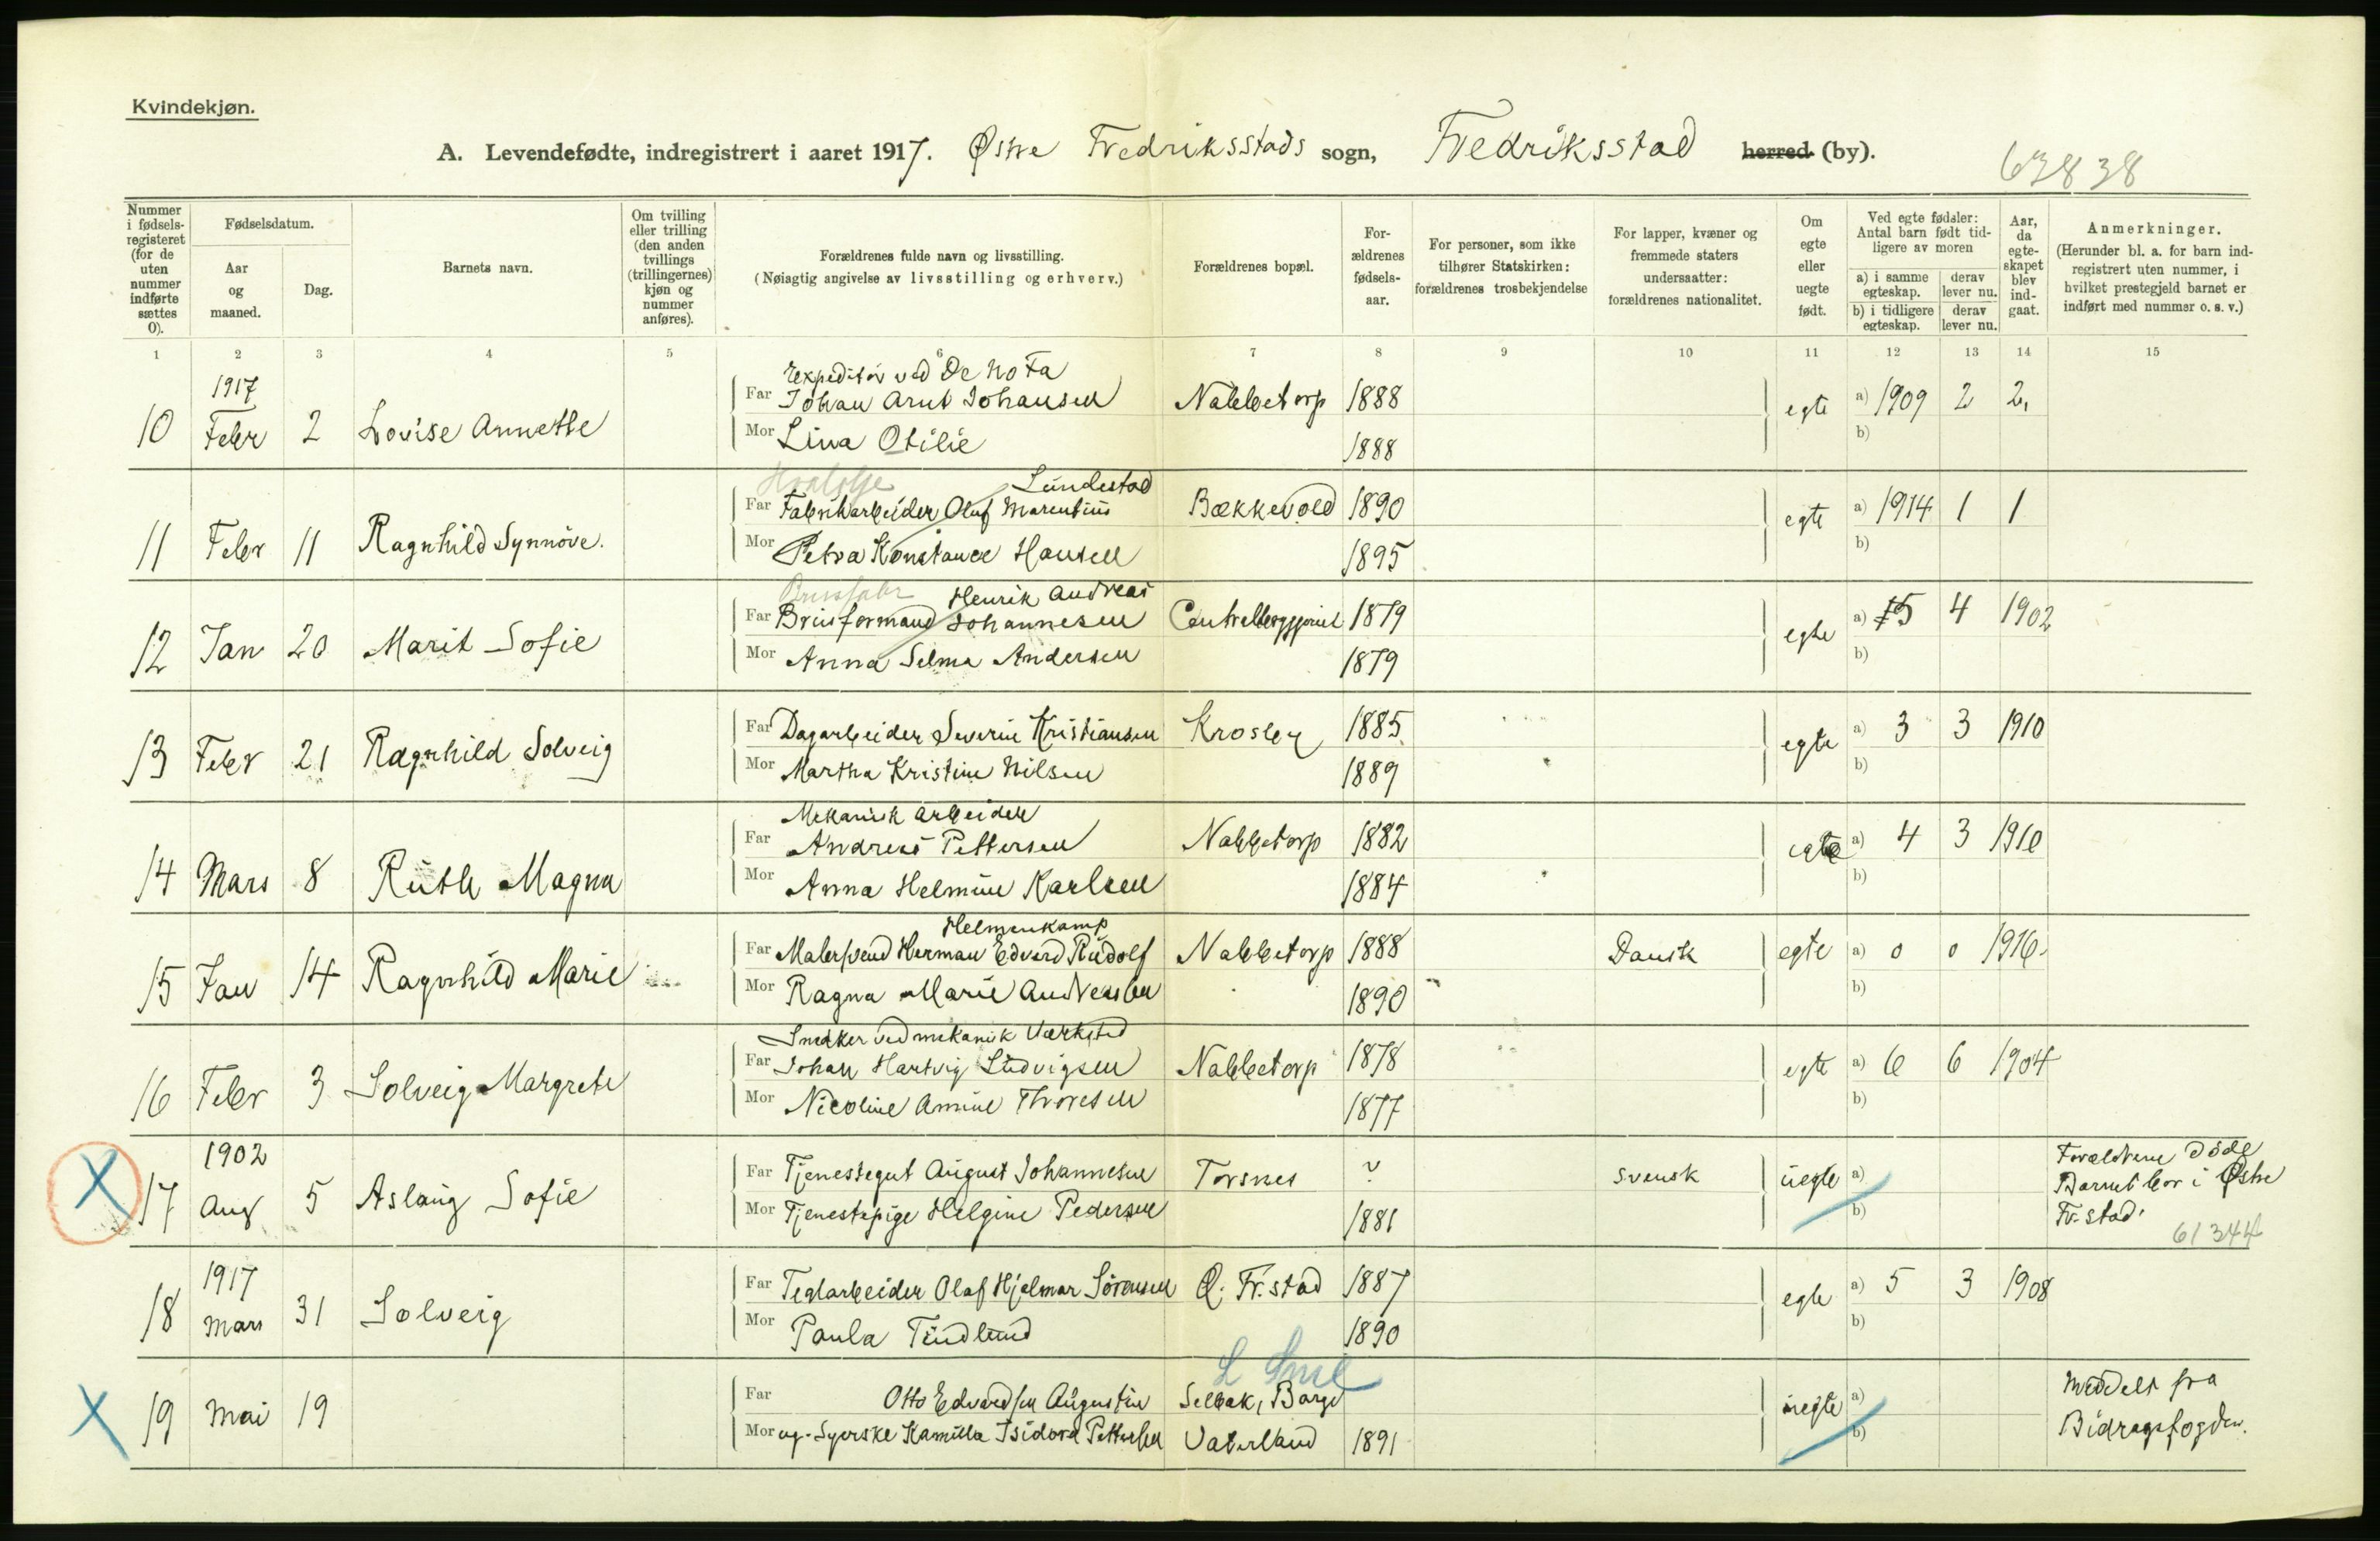 Kvindekjøn.
A. Levendefødte, indregistrert i aaret 1917. Østre Fredriksstads sogn, Fredriksstad herred (by).
63838
Nummer i fødsels-registeret (for de uten nummer indførte sættes 0).
Fødselsdatum.
Aar og maaned.
Dag.
Barnets navn.
Om tvilling eller trilling (den anden tvillings (trillingernes) kjøn og nummer anføres).
Forældrenes fulde navn og livsstilling.
(Nøiagtig angivelse av livsstilling og erhverv.)
Forældrenes bopæl.
For-ældrenes fødsels-aar.
For personer, som ikke tilhører Statskirken: forældrenes trosbekjendelse
For lapper, kvæner og fremmede staters undersaatter: forældrenes nationalitet.
Om egte eller uegte født.
Ved egte fødsler: Antal barn født tid-ligere av moren
a) i samme egteskap.
derav lever nu.
b) i tidligere egteskap.
derav lever nu.
Aar, da egte-skapet blev ind-gaat.
Anmerkninger.
(Herunder bl. a. for barn ind-registrert uten nummer, i hvilket prestegjeld barnet er indført med nummer o. s. v.)
1 2 3 4 5 6 7 8 9 10 11 12 13 14 15
1917
Expeditør ved De No Fa
10 Febr 2 Lovise Annette Far Johan Arnt Johansen Nabbetorp 1888 egte a) 1909 2 2,
Mor Lina Otilie 1888 b)
Lundestad
11 Febr 11 Ragnhild Synnöve. Far Fabrikarbeider Oluf Marentius Bækkevold 1890 egte a) 1914 1 1
Mor Petra Konstance Hansen 1895 b)
Henrik Andreas
12 Jan 20 Marit Sofie Far Brusformand Johannesen 1879 egte a) 5 4 1902
Mor Anna Selma Andersen 1879 b)
13 Febr 21 Ragnhild Solveig Far Dagarbeider Severin Kristiansen Krosby 1885 egte a) 3 3 1910
Mor Martha Kristine Nilsen 1889 b)
Mekanisk arbeider
14 Mars 8 Ruth Magna Far Andreas Pettersen Nabbetorp 1882 egte a) 4 3 1910
Mor Anna Helmine Karlsen 1884 b)
Helmenkamp
15 Jan 14 Ragnhild Marie Far Malersvend Herman Edvard Rudolf Nabbetorp 1888 Dansk egte a) 0 0 1916.
Mor Ragna Marie Andreassen 1890 b)
Snedker ved mekanisk Værksted
16 Febr 3 Solveig Margrete Far Johan Hartvig Ludvigsen Nabbetorp 1878 egte a) 6 6 1904
Mor Nicoline Amine Thoresen 1877 b)
1902
X 17 Aug 5 Aslaug Sofie Far Tjenestegut August Johannesen Torsnes ? Svensk uegte a) Forældrene döde
Mor Tjenestepige Helgine Pedersen 1881 b) Barnet bor i Østre
Fr.stad.
61344
1917
18 Mars 31 Solveig Far Teglarbeider Olaf Hjelmar Sörensen Ø. Fr.stad 1887 egte a) 5 3 1908
Mor Paula Tindlund 1890 b)
X 19 Mai 19 Far Otto Edvardsen Augustin Selbak, Borge uegte a) Meddelt fra
Mor ug. Syerske Kamilla Isidora Pettersen Vaterland 1891 b) Bidragsfogden.